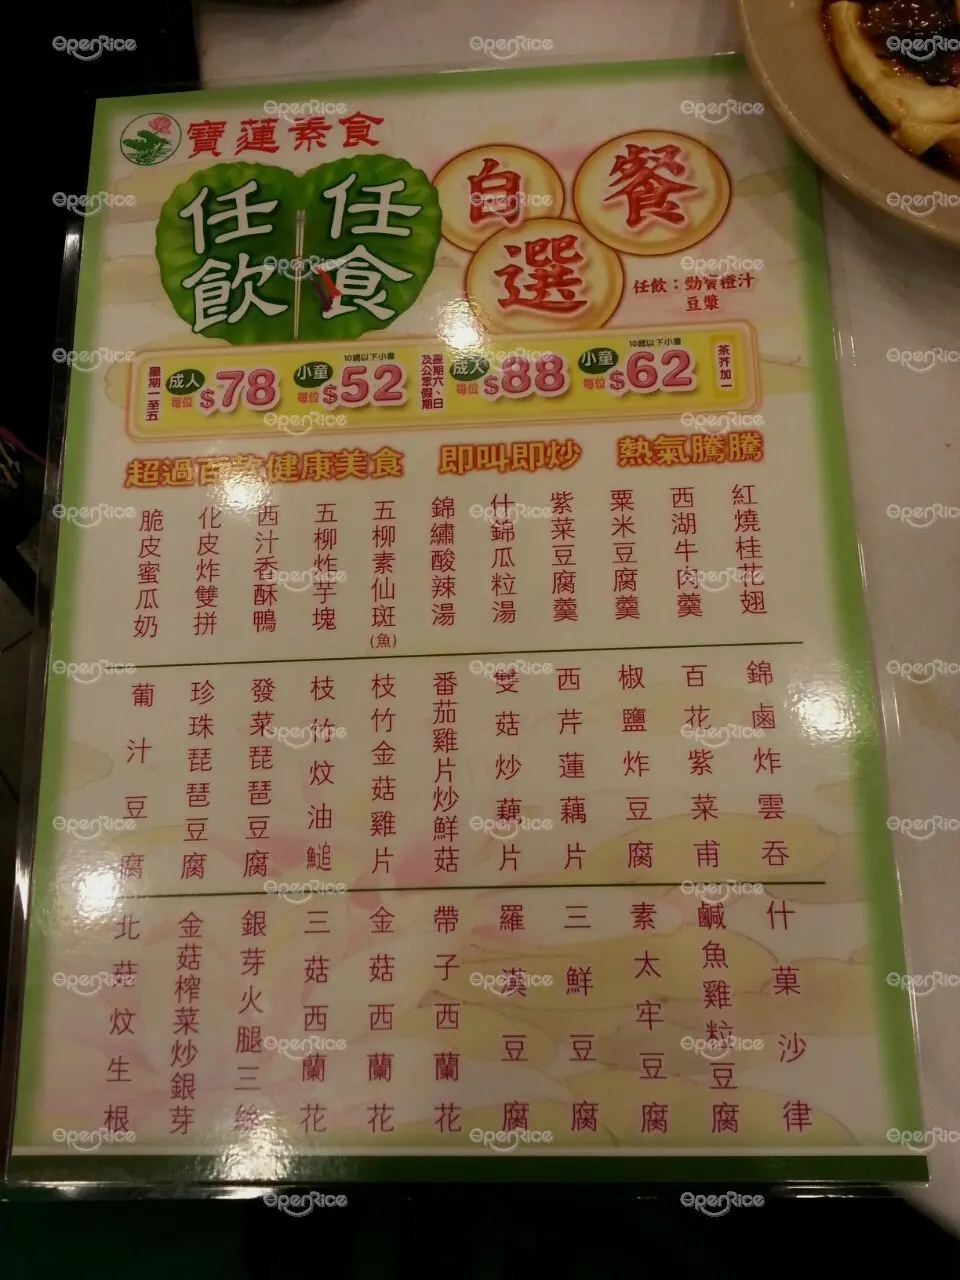 寶蓮素食
任飲
任食
自選餐
任飲：勁寶橙汁
豆漿
星期一至五
成人
每位
$78
10歲以下小童
小童
每位
$52
星期六、日
及公眾假期
成人
每位
$88
10歲以下小童
小童
每位
$62
茶芥加一
超過百款健康美食
即叫即炒
熱氣騰騰
紅燒桂花翅
西湖牛肉羹
粟米豆腐羹
紫菜豆腐羹
什錦瓜粒湯
錦繡酸辣湯
五柳素仙斑(魚)
五柳炸芋塊
西汁香酥鴨
化皮炸雙拼
脆皮蜜瓜奶
錦鹵炸雲吞
百花紫菜甫
椒鹽炸豆腐
西芹蓮藕片
雙菇炒藕片
番茄雞片炒鮮菇
枝竹金菇雞片
枝竹炆油䱽
發菜琵琶豆腐
珍珠琵琶豆腐
葡汁豆腐
什菓沙律
鹹魚雞粒豆腐
素太牢豆腐
三鮮豆腐
羅漢豆腐
帶子西蘭花
金菇西蘭花
三菇西蘭花
銀芽火腿三絲
金菇榨菜炒銀芽
北菇炆生根
OpenRice